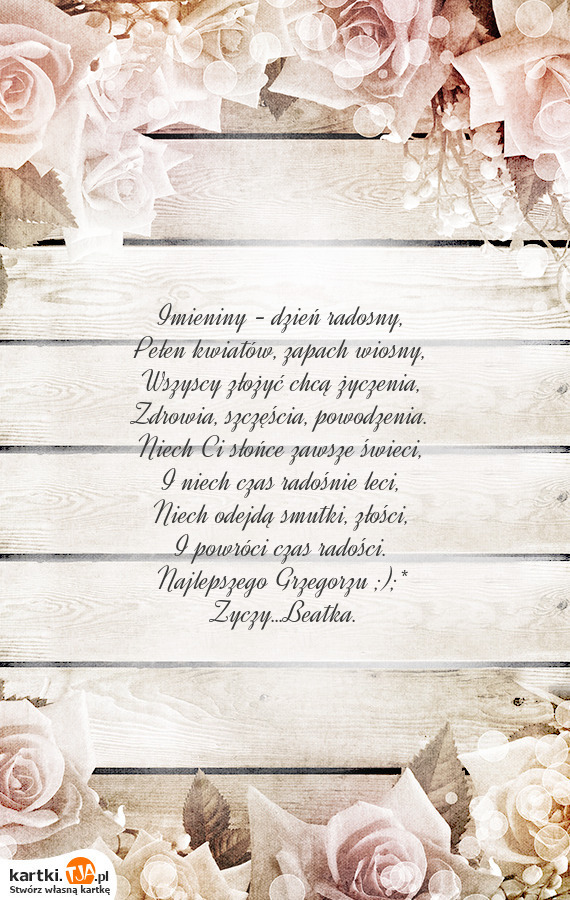 Imieniny - dzień radosny,
Pełen kwiatów, zapach wiosny,
Wszyscy złożyć chcą życzenia,
Zdrowia, szczęścia, powodzenia.
Niech Ci słońce zawsze świeci,
I niech czas radośnie leci,
Niech odejdą smutki, złości,
I powróci czas radości.
Najlepszego Grzegorzu ;);*
Zyczy...Beatka.
kartki.TJA.pl
Stwórz własną kartkę